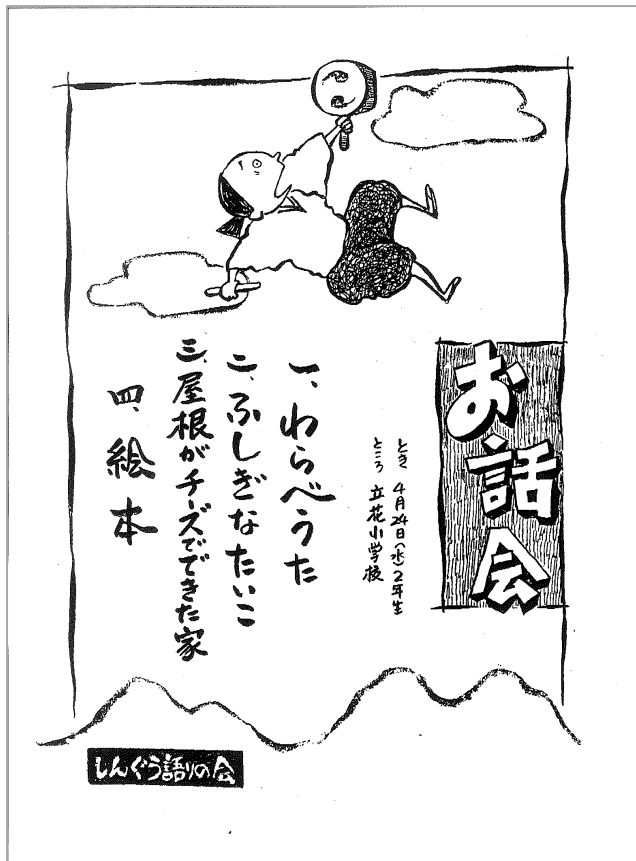 お話会
とき 4月24日(水)2年生
ところ 立花小学校
一、わらべうた
二、ふしぎなたいこ
三、屋根がチーズでできた家
四、絵本
しんぐう語りの会